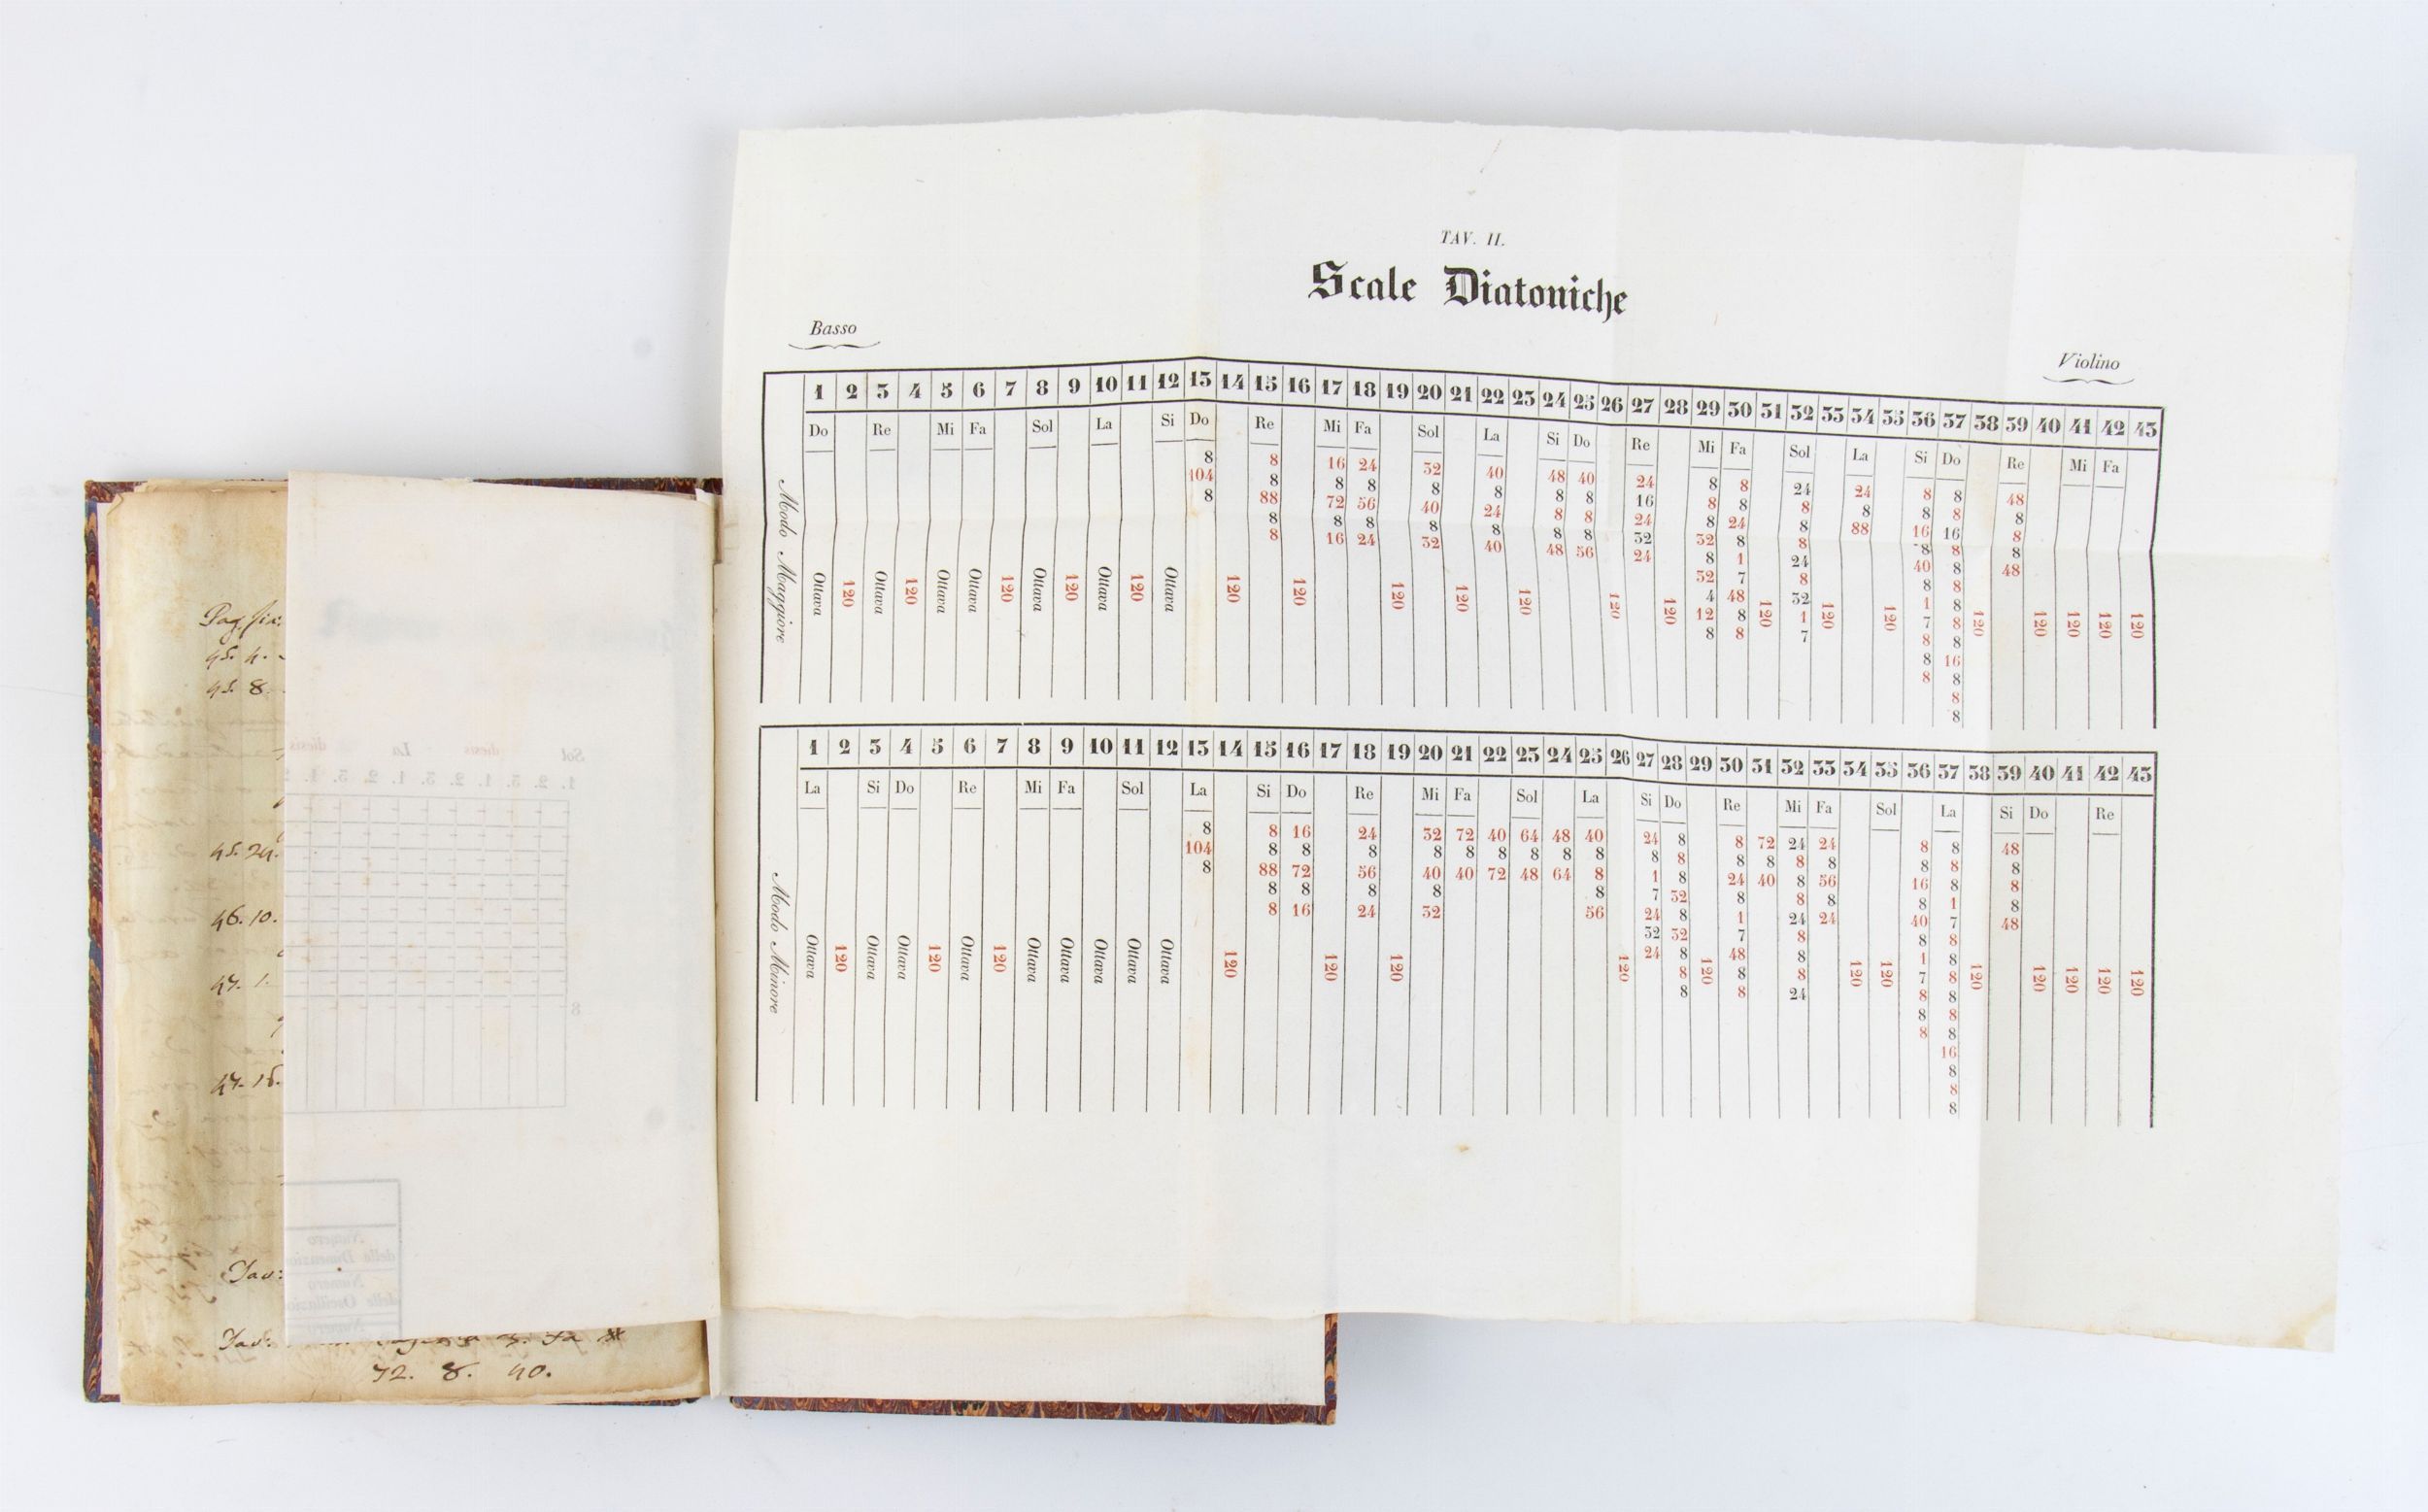 TAV. II.
Scale Diatoniche
Basso
Violino
1 2 3 4 5 6 7 8 9 10 11 12 13 14 15 16 17 18 19 20 21 22 23 24 25 26 27 28 29 30 31 32 33 34 35 36 37 38 39 40 41 42 43
Do Re Mi Fa Sol La Si Do Re Mi Fa Sol La Si Do Re Mi Fa Sol La Si Do Re Mi Fa
8 8 16 24 32 40 48 40 24 8 8 24 24 8 8 48
104 8 8 8 8 8 8 8 16 8 8 8 8 8 8 8
8 88 72 56 40 24 8 8 24 8 24 8 88 16 16 8
8 8 8 8 8 8 8 32 32 8 8 8 8 8
8 16 24 32 40 48 56 24 8 1 24 40 8 48
32 7 8 8 8
4 48 32 1 8
12 8 1 7 8
8 8 7 8 8
8 16
8 8
8
8
Modo Maggiore
Ottava 120 Ottava 120 Ottava Ottava 120 Ottava 120 Ottava 120 Ottava 120 120 120 120 120 120 120 120 120 120 120 120 120 120 120
1 2 3 4 5 6 7 8 9 10 11 12 13 14 15 16 17 18 19 20 21 22 23 24 25 26 27 28 29 30 31 32 33 34 35 36 37 38 39 40 41 42 43
La Si Do Re Mi Fa Sol La Si Do Re Mi Fa Sol La Si Do Re Mi Fa Sol La Si Do Re
8 8 16 24 32 72 40 64 48 40 24 8 8 72 24 24 8 8 48
104 8 8 8 8 8 8 8 8 8 8 8 8 8 8 8 8 8 8
8 88 72 56 40 40 72 48 64 8 1 8 24 40 8 56 16 8 8
8 8 8 8 8 7 32 8 8 8 8 1 8
8 16 24 32 56 24 8 1 24 24 40 7 48
32 32 7 8 8 8
24 8 48 8 1 8
8 8 8 7 8
8 8 24 8 8
8 8
8 8
16
8
8
8
Modo Minore
Ottava 120 Ottava Ottava 120 Ottava 120 Ottava Ottava Ottava Ottava Ottava 120 120 120 120 120 120 120 120 120 120 120 120
45. 8.
45. 24.
46. 10.
47. 1.
Tav:
Tav:
72. 8. 40.